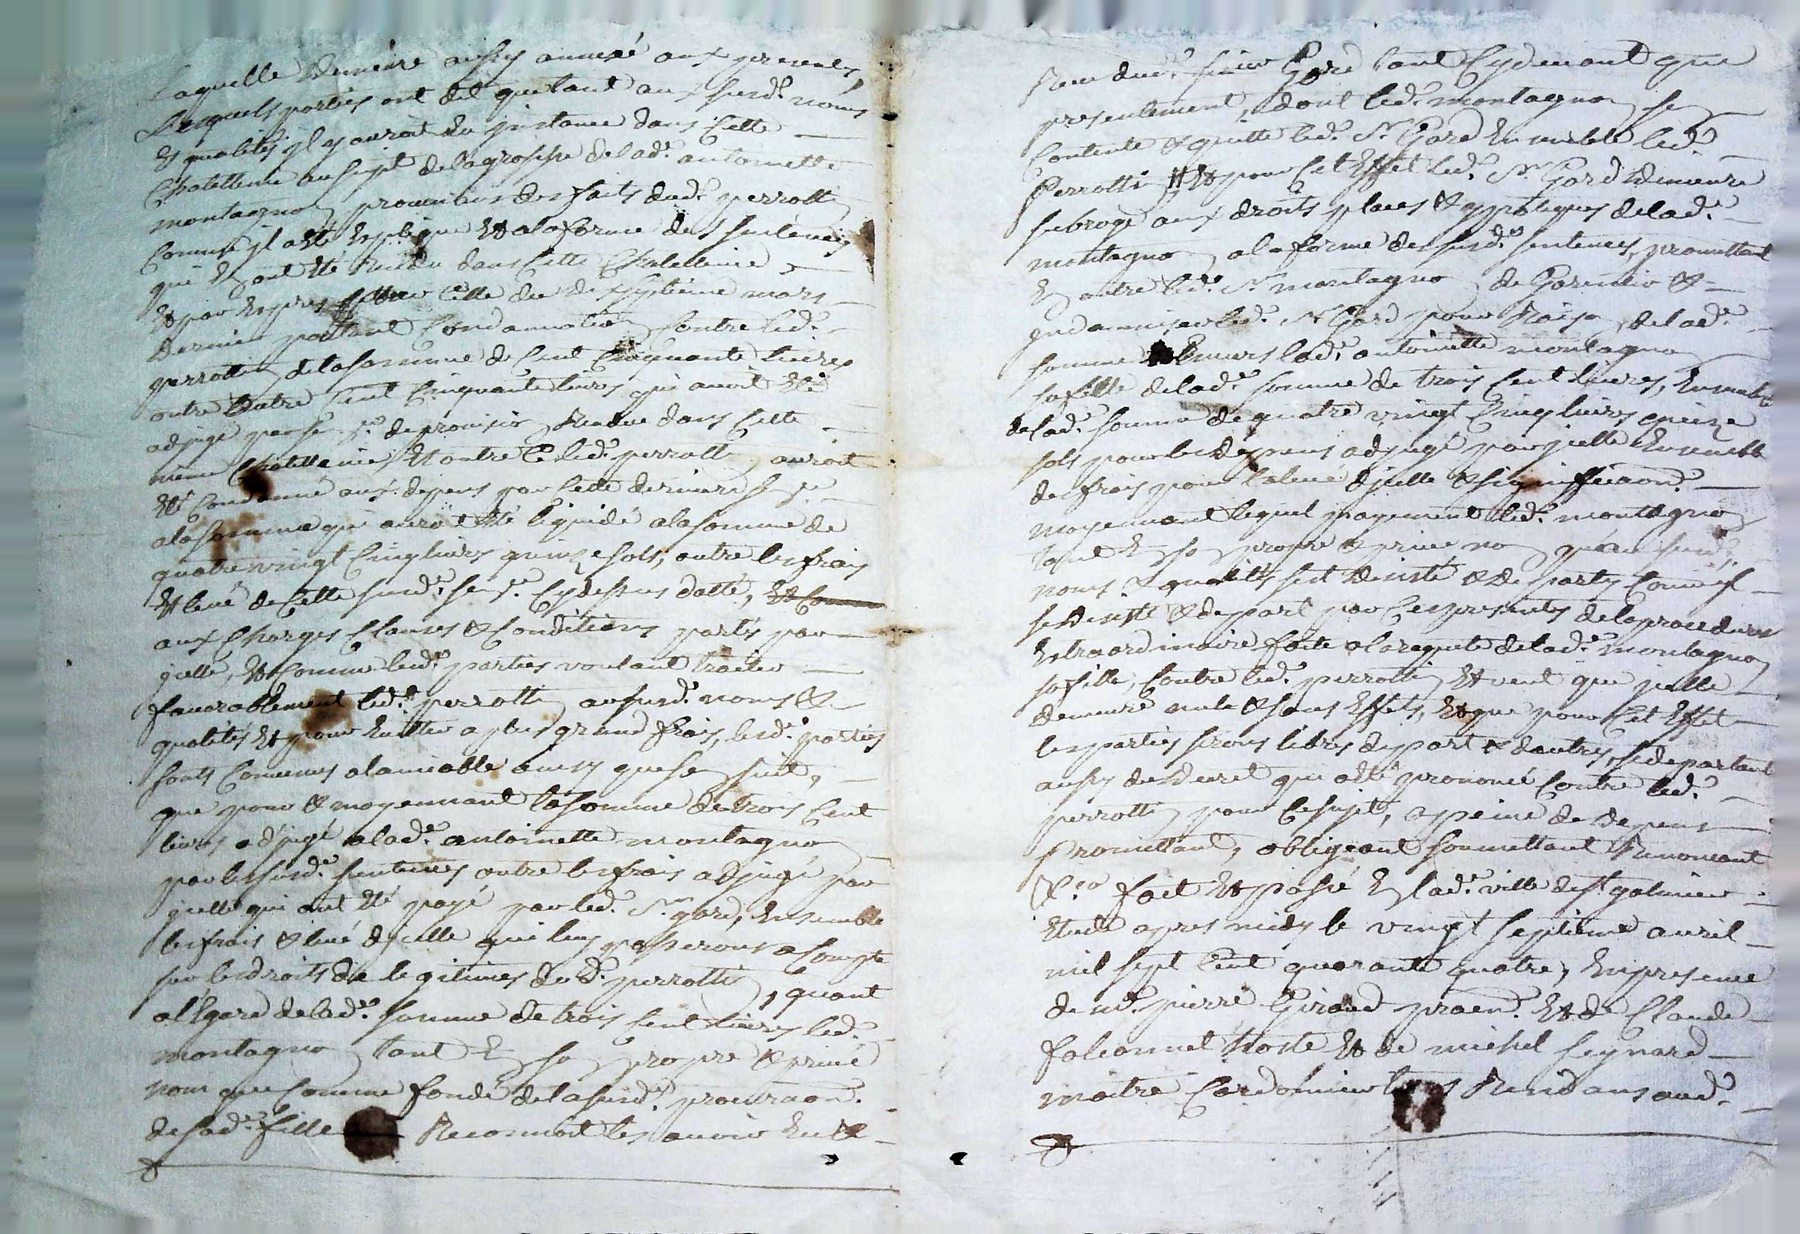 Laquelle demeure aussy annexé aux presentes,
Lesquels parties ont dit que tant aux susd.s noms
Et qualités il y auroit eu jnstance dans cette
Chatellenie au sujet de la grossesse de lad.e antoinette
montagnon provenus des faits dud.t perrotti
Comme jl a esté Expliqué Et a la forme des sentences
qui En ont été Rendu dans cette Chatellenie
Et par Expres celle du dixseptieme mars
Dernier portant Condannation Contre led.t
perrotti de la somme de Cent Cinquante Livres
outre Cent Cinquante livres qui avoit Eté
adjugé par sen.ce de provision Rendue dans Cette
même Chatellenie, Et outre ce led.t perrotti auroit
Eté Condanné aux depens par cette derniere sen.ce
a la somme qui auroit été liquidé a la somme de
quatre vingt Cinq livres quinze sols, outre les frais
Et levé de Cette susd.e sen.ce Cydessus datté,
aux Charges Clauses & Conditions portés par
jcelle, Et Comme lesd.s parties voulant traiter
favorablement led.t perrotti au susd.s noms &
qualités Et pour Eviter a plus grand frais, lesd.s parties
sonts Convenus a lamiable ainsy que sen suit,
que pour & moyennant la somme de trois Cent
livres adjugé a lad.e antoinette montagnon
par les susd.s sentences outre les frais adjugé par
jcelle qui ont Eté payé par led.t S.r gord, Ensemble
les frais & levé djcelle qui luy passeront a Compte
sur les droits de legitimes dud.t perrotti, quant
a legard de lad.e somme de trois Cent Livres led.t
montagnon tant En son propre & privé
nom que Comme fondé de la susd.e procuraon.
de sad.e fille Reconnoit les avoir Eu &
Receu dud.t sieur Gord tant Cydevant que
presentement, dont led.t montagnon se
Contente & quitte led.t S.r Gord Ensemble led.t
Perrotti Et pour Cet Effet led.t S.r Gord demeure
subrogé aux droits places & ypoteques de lad.e
montagnon a la forme des susd.s sentences, promettant
En outre led.t S.r montagnon de Garentir &
jndanniser led.t S.r Gord pour Raison de lad.e
somme Envers lad.e antoinette montagnon
sa fille de lad.e somme de trois Cent Livres, Ensemble
de lad.e somme de quatre vingt Cinq livres quinze
sols pour les depens adjugé par jcelle Ensemble
des frais pour la levé djcelle & signifficaon.
moyennant lequel payement led.t montagnon
tant En son propre & privé nom quau susd.s
noms & qualités sest Desisté & De party Comme jl
se Desiste & depart par Ces presentes de la procedure
Extraordinaire faite a la requete de lad.e montagnon
sa fille, Contre led.t perrotti Et veut que jcelle
demeure nulle & sans Effets, Et que pour Cet Effet
les parties seront libres de part & dautres, se departant
aussy du decret qui a été prononcé Contre led.t
perrotti pour Ce sujet, a peine de depens
Promettant, obligeant soumettant Renoncant
&.a fait Et passé En lad.e ville de S.t galmier
Etude apres midy le vingt septieme avril
mil sept Cent quarante quatre, En presence
de m.e pierre Giraud praen. Et de Claude
falconnet hoste Et de michel seynard
maitre Cordonnier tous Residans aud.t